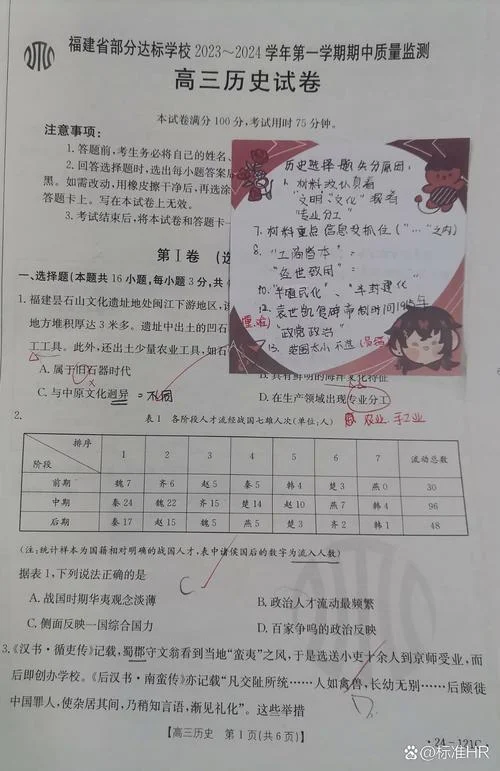 福建省部分达标学校2023～2024学年第一学期期中质量监测
高三历史试卷
本试卷满分100分,考试用时75分钟。
注意事项:
1.答题前,考生务必将自己的姓名、
2.回答选择题时,选出每小题答案后
黑。如需改动,用橡皮擦干净后,再选涂
答题卡上。写在本试卷上无效。
3.考试结束后,将本试卷和答题卡一
历史选择题失分原因:
1. 材料没认真看
"文明""文化"
"专业分工"
7. 材料重点信息没抓住("…"之内)
8. "工商皆本"=
"经世致用"=
10. "半殖民化" "半封建化"
12. 袁世凯复辟帝制时间1915年
"政党政治"
13. 范围太小不选
第Ⅰ卷 (选
一、选择题(本题共16小题,每小题3分,共
1.福建昙石山文化遗址地处闽江下游地区,
地方堆积厚达3米多。遗址中出土的凹石
工工具。此外,还出土少量农业工具,如石
A.属于旧石器时代
B.具有鲜明的海洋文化特征
C.与中原文化迥异 =不同
D.在生产领域出现专业分工
农业 手工业
2.
表1 各阶段人才流经战国七雄人次(单位:人)
排序 阶段 1 2 3 4 5 6 7 流动总数
前期 魏7 齐6 赵5 秦5 韩4 楚3 燕0 30
中期 秦24 魏22 齐15 楚14 赵10 燕7 韩4 96
后期 秦17 赵15 魏5 燕5 楚3 齐2 韩1 48
(注:统计样本为国籍相对明确的战国人才,表中诸侯国后的数字为流入人数)
据表1,下列说法正确的是
C
A.战国时期华夷观念淡薄
B.政治人才流动最频繁
C.侧面反映一国综合国力
D.百家争鸣的政治反映
3.《汉书·循吏传》记载,蜀郡守文翁看到当地"蛮夷"之风,于是选送小吏十余人到京师受业,而
后即创办学校。《后汉书·南蛮传》亦记载"凡交阯所统……人如禽兽,长幼无别……后颇徙
中国罪人,使杂居其间,乃稍知言语,渐见礼化"。这些举措
D
【高三历史 第1页(共6页)】
·24-121C·
@标准HR